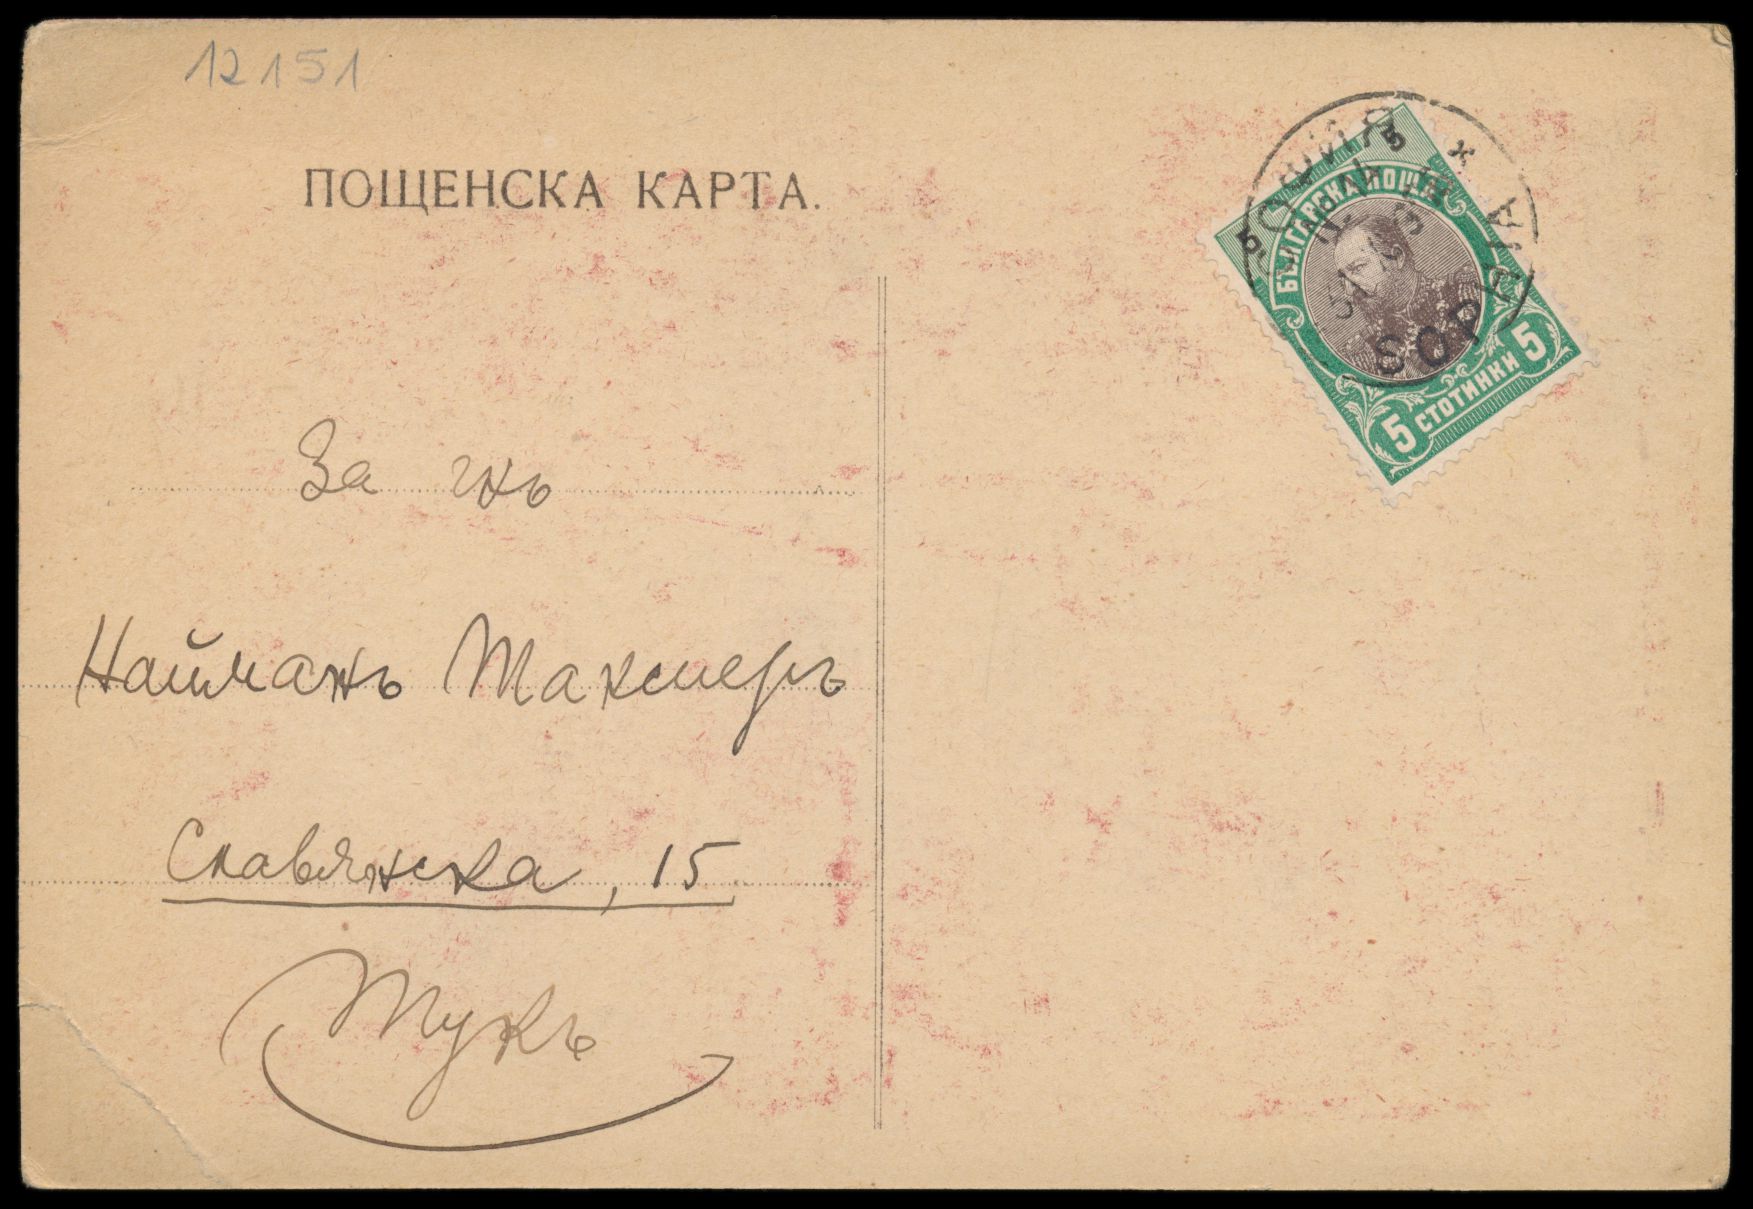 12151
ПОЩЕНСКА КАРТА.
БЪЛГАРСКА ПОЩА
5 5
5 СТОТИНКИ 5
За гнъ
Найманъ Таксиеръ
Славянска, 15
Тукъ